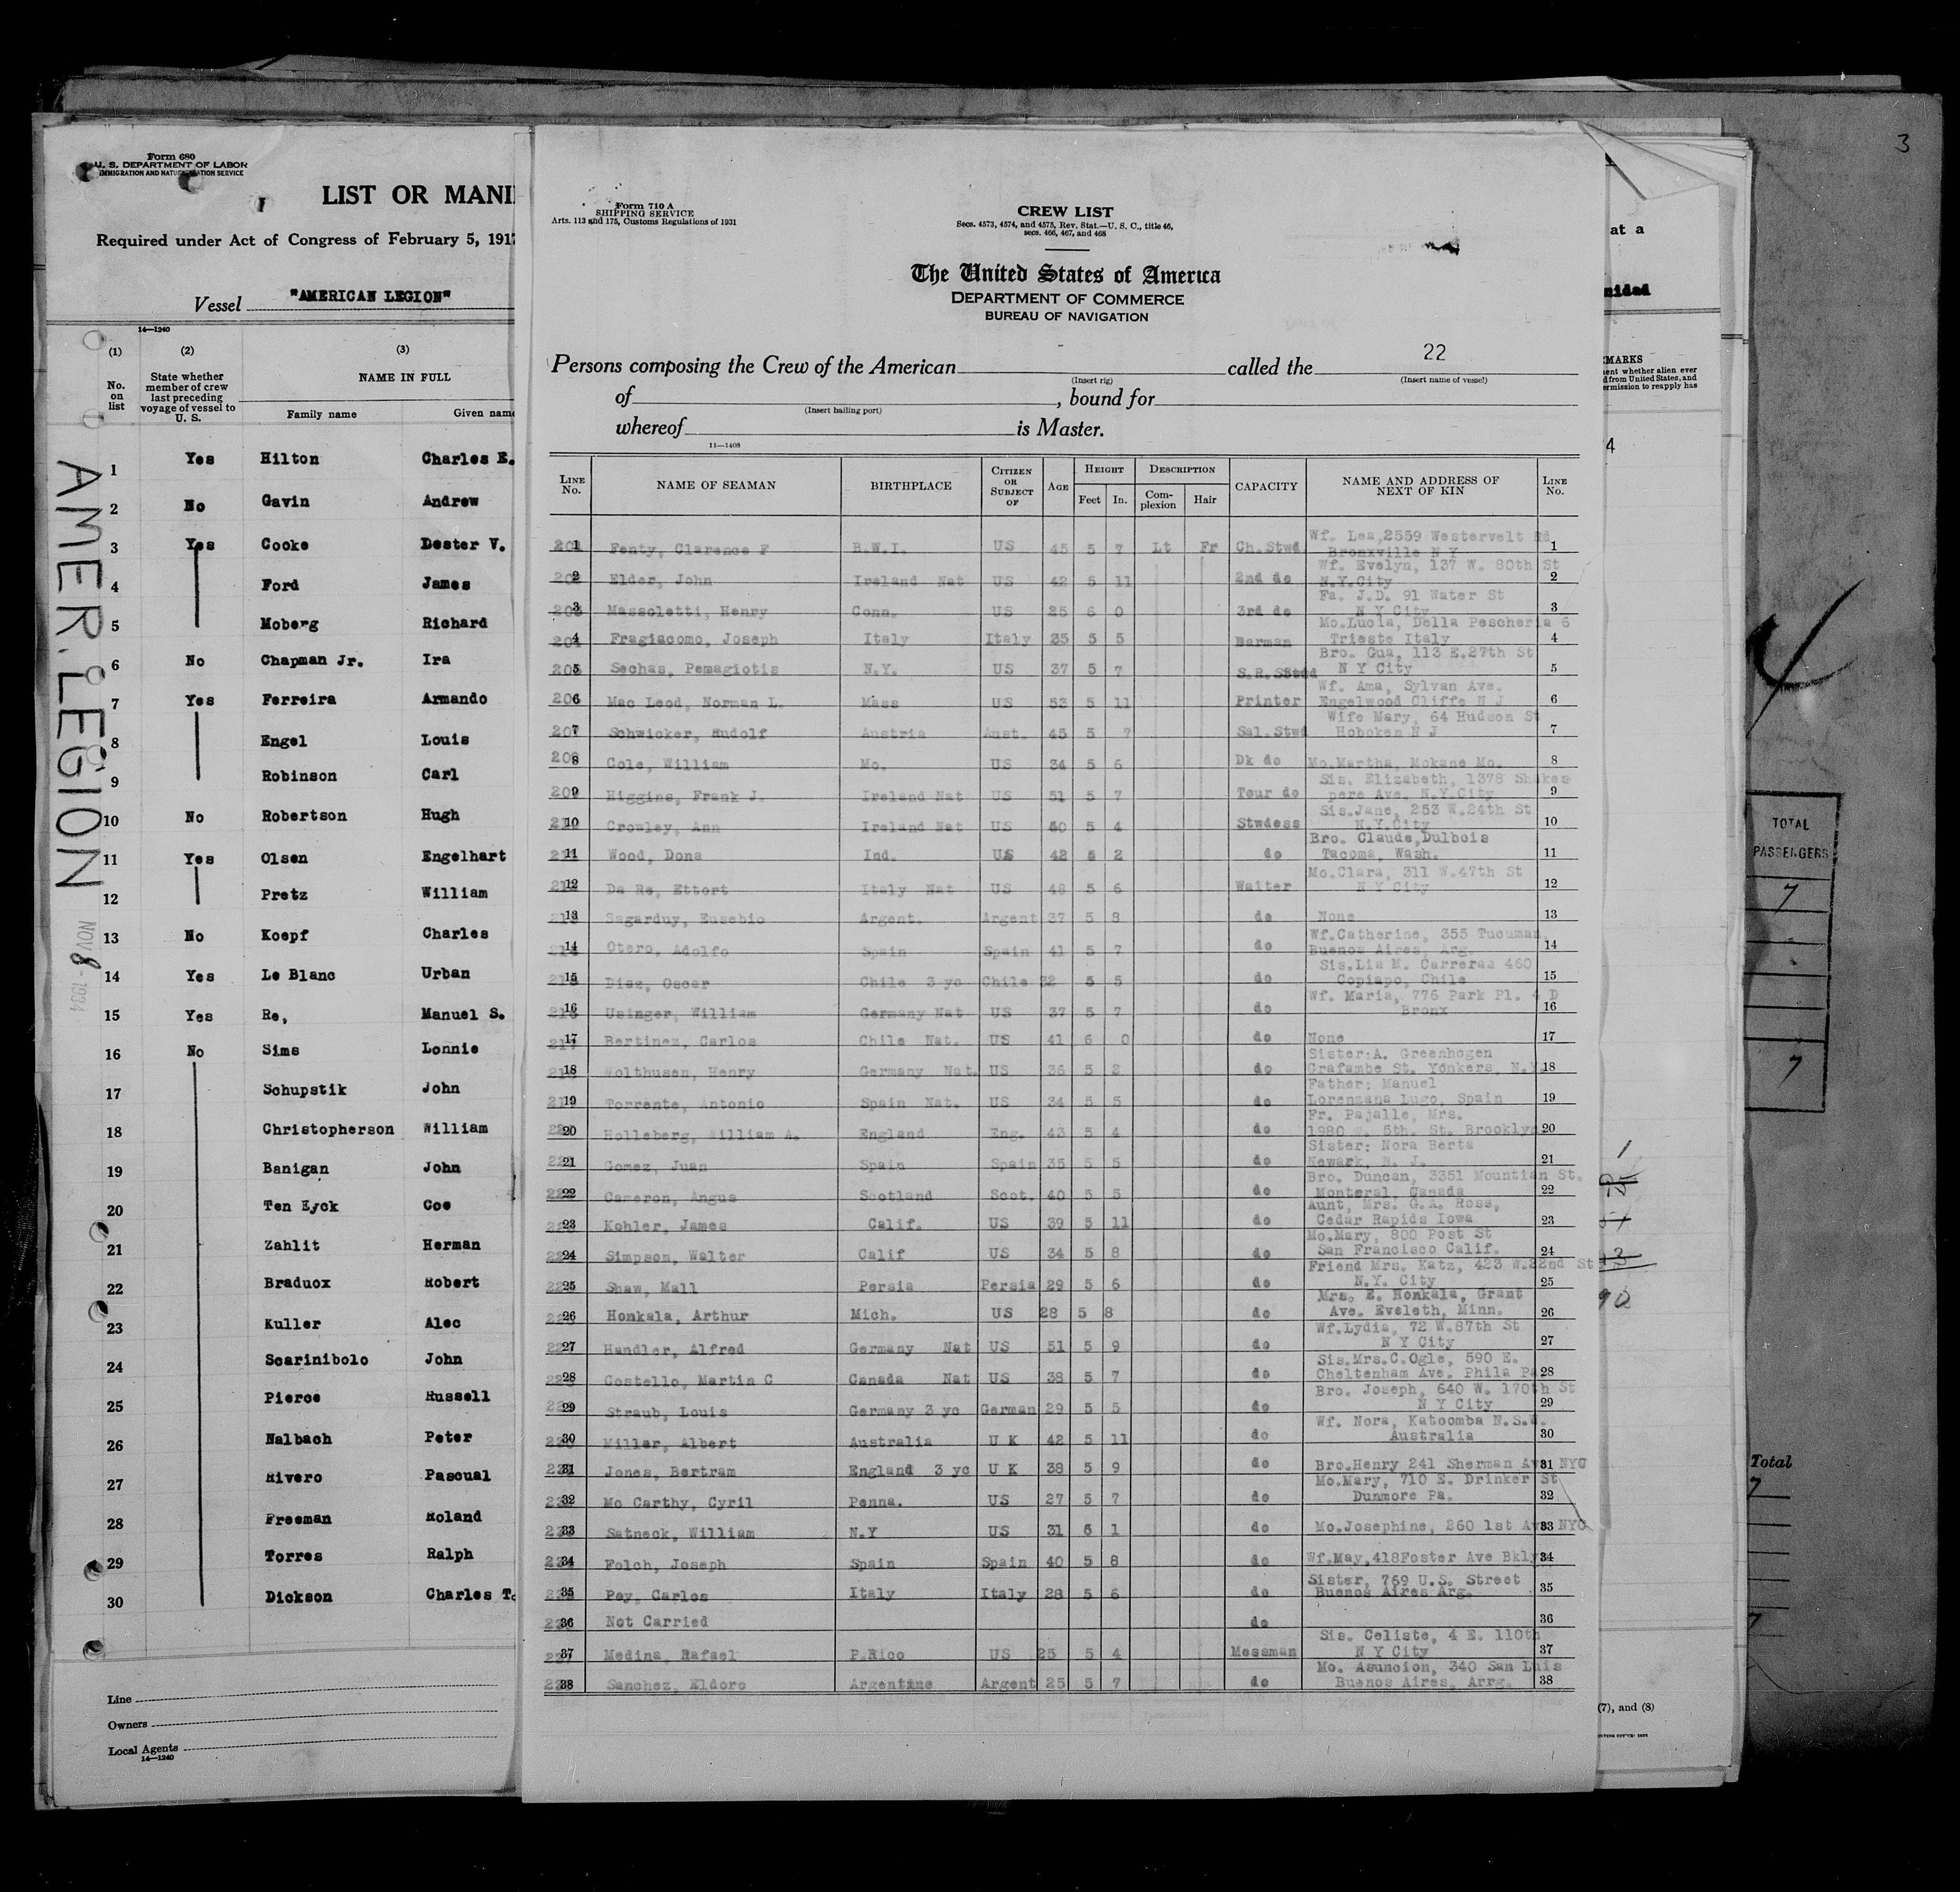 3
Form 680
U. S. DEPARTMENT OF LABOR
IMMIGRATION AND NATURALIZATION SERVICE
LIST OR MANI
Required under Act of Congress of February 5, 1917
Vessel "AMERICAN LEGION"
14—1240
(1) (2) (3)
No. on list
State whether member of crew last preceding voyage of vessel to U. S.
NAME IN FULL
Family name Given name
1 Yes Hilton Charles E.
2 No Gavin Andrew
3 Yes Cooke Dester V.
4 Ford James
5 Moberg Richard
6 No Chapman Jr. Ira
7 Yes Ferreira Armando
8 Engel Louis
9 Robinson Carl
10 No Robertson Hugh
11 Yes Olsen Engelhart
12 Pretz William
13 No Koepf Charles
14 Yes Le Blanc Urban
15 Yes Re, Manuel S.
16 No Sims Lonnie
17 Schupstik John
18 Christopherson William
19 Banigan John
20 Ten Eyck Coe
21 Zahlit Herman
22 Braduox Robert
23 Kuller Alec
24 Scarinibolo John
25 Pierce Russell
26 Nalbach Peter
27 Rivero Pascual
28 Freeman Roland
29 Torres Ralph
30 Dickson Charles T.
Line
Owners
Local Agents
14—1240
AMER. LEGION
NOV 8 1934
Form 710 A
SHIPPING SERVICE
Arts. 113 and 175, Customs Regulations of 1931
CREW LIST
Secs. 4573, 4574, and 4575, Rev. Stat.—U. S. C., title 46,
secs. 466, 467, and 468
The United States of America
DEPARTMENT OF COMMERCE
BUREAU OF NAVIGATION
Persons composing the Crew of the American called the 22
(Insert rig) (Insert name of vessel)
of , bound for
(Insert hailing port)
whereof is Master.
11—1408
LINE No. NAME OF SEAMAN BIRTHPLACE CITIZEN OR SUBJECT OF AGE HEIGHT Feet In. DESCRIPTION Complexion Hair CAPACITY NAME AND ADDRESS OF NEXT OF KIN LINE No.
1 Fenty, Clarence F B.W.I. US 45 5 7 Lt Fr Ch.Stwd Wf. Lea,2559 Westervelt Rd Bronxville N Y 1
2 Elder, John Ireland Nat US 42 5 11 2nd do Wf. Evelyn, 137 W. 80th St N.Y.City 2
3 Massoletti, Henry Conn. US 25 6 0 3rd do Fa. J.D. 91 Water St N Y City 3
4 Fragiacomo, Joseph Italy Italy 35 5 5 Barman Mo.Lucia, Della Pescheria 6 Trieste Italy 4
5 Sechas, Pemagiotis N.Y. US 37 5 7 S.R.SStwd Bro. Gua, 113 E.27th St N Y City 5
206 Mac Leod, Norman L. Mass US 53 5 11 Printer Wf. Ama, Sylvan Ave. Engelwood Cliffs N J 6
207 Schwicker, Rudolf Austria Aust. 45 5 7 Sal.Stwd Wife Mary, 64 Hudson St Hoboken N J 7
208 Cole, William Mo. US 34 5 6 Dk do Mo.Martha, Mokane Mo. 8
209 Higgins, Frank J. Ireland Nat US 51 5 7 Tour do Sis. Elizabeth, 1378 Shakes pere Ave. N.Y.City 9
10 Crowley, Ann Ireland Nat US 50 5 4 Stwdess Sis.Jane, 253 W.24th St N.Y.City 10
11 Wood, Dona Ind. US 42 5 2 do Bro. Claude,Dulbois Tacoma, Wash. 11
12 Da Re, Ettort Italy Nat US 48 5 6 Waiter Mo.Clara, 311 W.47th St N Y City 12
13 Sagarduy, Eusebio Argent. Argent 37 5 8 do None 13
14 Otero, Adolfo Spain Spain 41 5 7 do Wf.Catherine, 355 Tucuman, Buenos Aires, Arg. 14
15 Diaz, Oscar Chile 3 yc Chile 32 5 5 do Sis.Lia M. Carreras 460 Copiapo, Chile 15
16 Usinger, William Germany Nat US 37 5 7 do Wf. Maria, 776 Park Pl. 4 D Bronx 16
17 Bertinez, Carlos Chile Nat. US 41 6 0 do None 17
18 Wolthusen, Henry Germany Nat. US 36 5 2 do Sister:A. Greenhogen Grafambe St. Yonkers, N.Y. 18
19 Torrente, Antonio Spain Nat. US 34 5 5 do Father: Manuel Lorenzana Lugo, Spain 19
20 Holleberg, William A. England Eng. 43 5 4 do Fr. Pajalle, Mrs. 1980 W. 5th. St. Brooklyn 20
21 Gomez, Juan Spain Spain 35 5 5 do Sister: Nora Berta Newark, N. J. 21
22 Cameron, Angus Scotland Scot. 40 5 5 do Bro. Duncan, 3351 Mountian St. Monteral, Canada 22
23 Kohler, James Calif. US 39 5 11 do Aunt, Mrs. G.A. Ross, Cedar Rapids Iowa 23
24 Simpson, Walter Calif US 34 5 8 do Mo.Mary, 800 Post St San Francisco Calif. 24
25 Shaw, Mall Persia Persia 29 5 6 do Friend Mrs. Katz, 423 W.22nd St N.Y. City 25
26 Honkala, Arthur Mich. US 28 5 8 do Mrs. E. Honkala, Grant Ave. Eveleth, Minn. 26
27 Handler, Alfred Germany Nat US 51 5 9 do Wf.Lydia, 72 W.87th St N Y City 27
28 Costello, Martin C Canada Nat US 38 5 7 do Sis.Mrs.C.Ogle, 590 E. Cheltenham Ave. Phila Pa 28
29 Straub, Louis Germany 3 yc German 29 5 5 do Bro. Joseph, 640 W. 170th St N Y City 29
30 Miller, Albert Australia U K 42 5 11 do Wf. Nora, Katoomba N.S.W. Australia 30
31 Jones, Bertram England 3 yc U K 38 5 9 do Bro.Henry 241 Sherman Av NYC 31
32 Mc Carthy, Cyril Penna. US 27 5 7 do Mo.Mary, 710 E. Drinker St Dunmore Pa. 32
33 Satneck, William N.Y US 31 6 1 do Mo.Josephine, 260 1st Av NYC 33
34 Folch, Joseph Spain Spain 40 5 8 do Wf.May,418Foster Ave Bkly 34
35 Pey, Carlos Italy Italy 28 5 6 do Sister, 769 U.S. Street Buenos Aires Arg. 35
36 Not Carried do 36
37 Medina, Rafael P.Rico US 25 5 4 Messman Sis. Celiste, 4 E. 110th N Y City 37
38 Sanchez, Eldoro Argentine Argent 25 5 7 do Mo. Asuncion, 340 San Luis Buenos Aires, Arrg. 38
at a
nidad
EMARKS
ent whether alien ever
d from United States, and
ermission to reapply has
4
90
TOTAL
PASSENGERS
7
7
Total
7
7
(7), and (8)